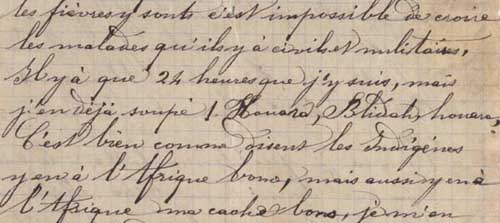 les fièvres y sont c'est impossible de croire
les malades qu'ils y à civils et militaires,
Il y à que 24 heures que j'y suis, mais
j'en déjà soupé 1. Kouara, Blidah, houara,
C'est bien comme disent les Indigènes
y en à l'Afrique bono, mais aussi y en à
l'Afrique ma cache bono, je m'en